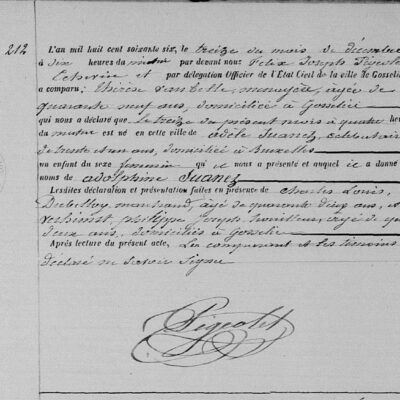 212
L'an mil huit cent soixante six, le treize du mois de décembre
à dix heures du matin par devant nous Felix Joseph Pigeolet
Echevin et par délégation Officier de l'État Civil de la ville de Gosselies
a comparu, Thérèse ménagère, âgée de
quarante neuf ans, domiciliée à Gosselies
qui nous a déclaré que le treize du présent mois à quatre heures
du matin est né en cette ville de adèle Suanez, célibataire
de trente et un ans, domiciliée à Bruxelles
un enfant du sexe feminin qu'il nous a présenté et auquel il a donné
noms de adolphine Suanez
Lesdites déclaration et présentation faites en présence de Charles Louis,
marchand, âgé de quarante deux ans, et
philippe joseph houilleur, âgé de
deux ans, domiciliés à Gosselies
Après lecture du présent acte, les comparant et les témoins
déclaré ne savoir signer
Pigeolet